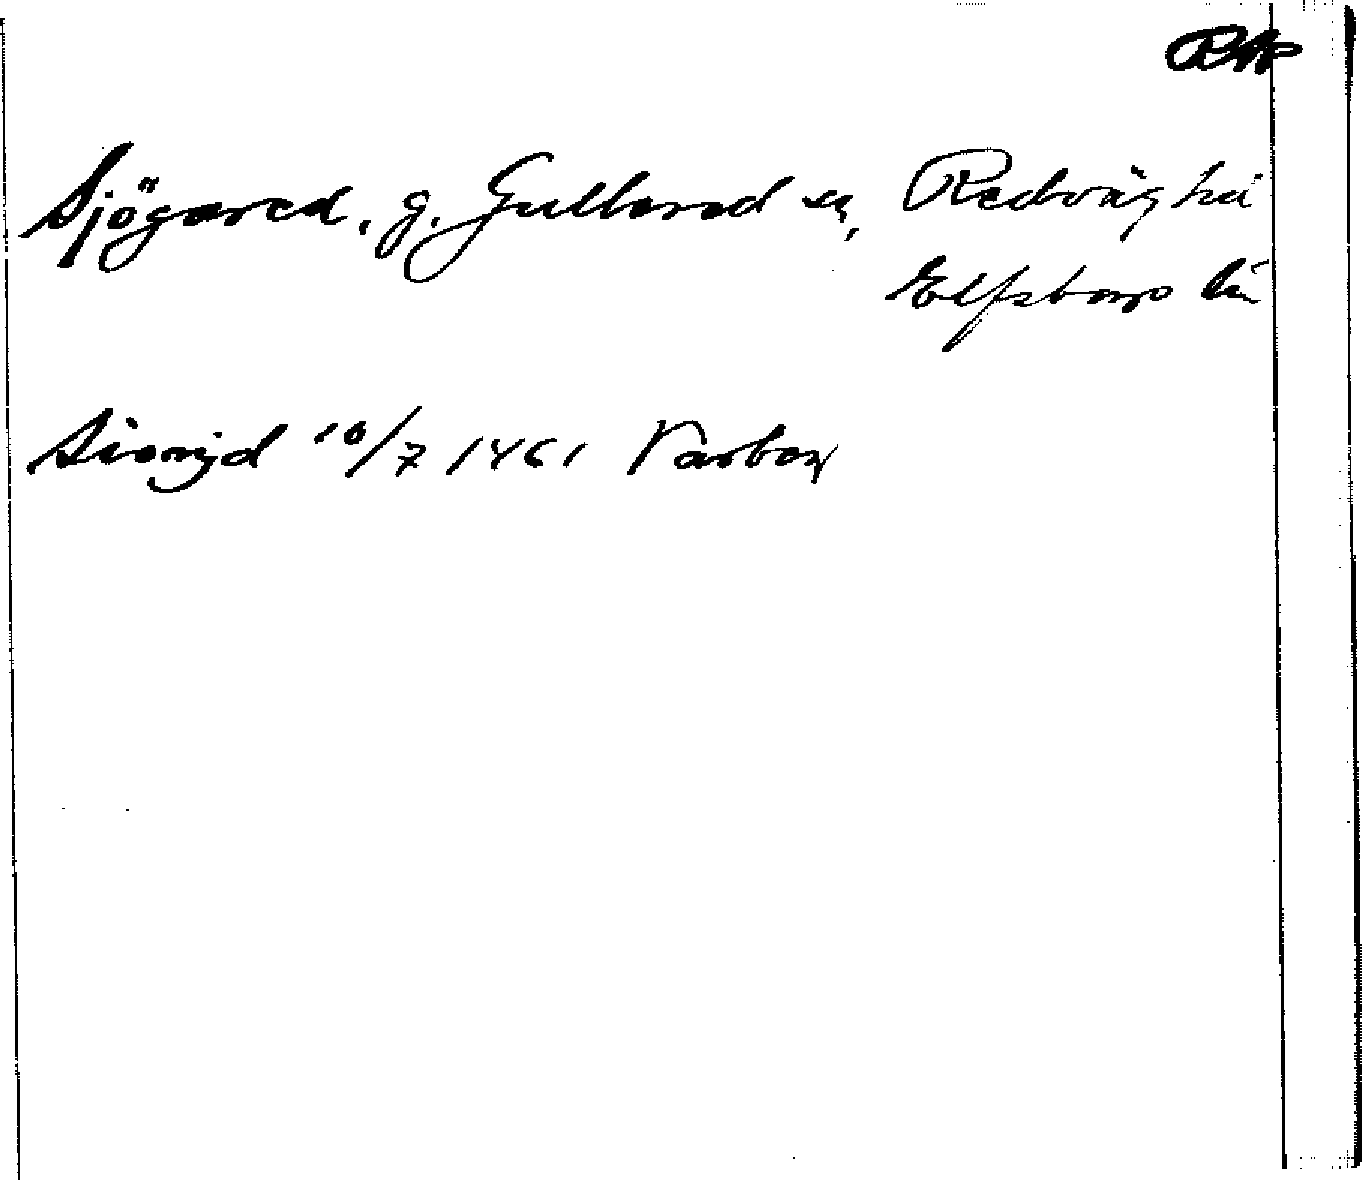 RAP
Sjögared, g. Gullered sn, Redvägs hd
Elfsborgs län
Sioryd 10/7 1461 Varberg